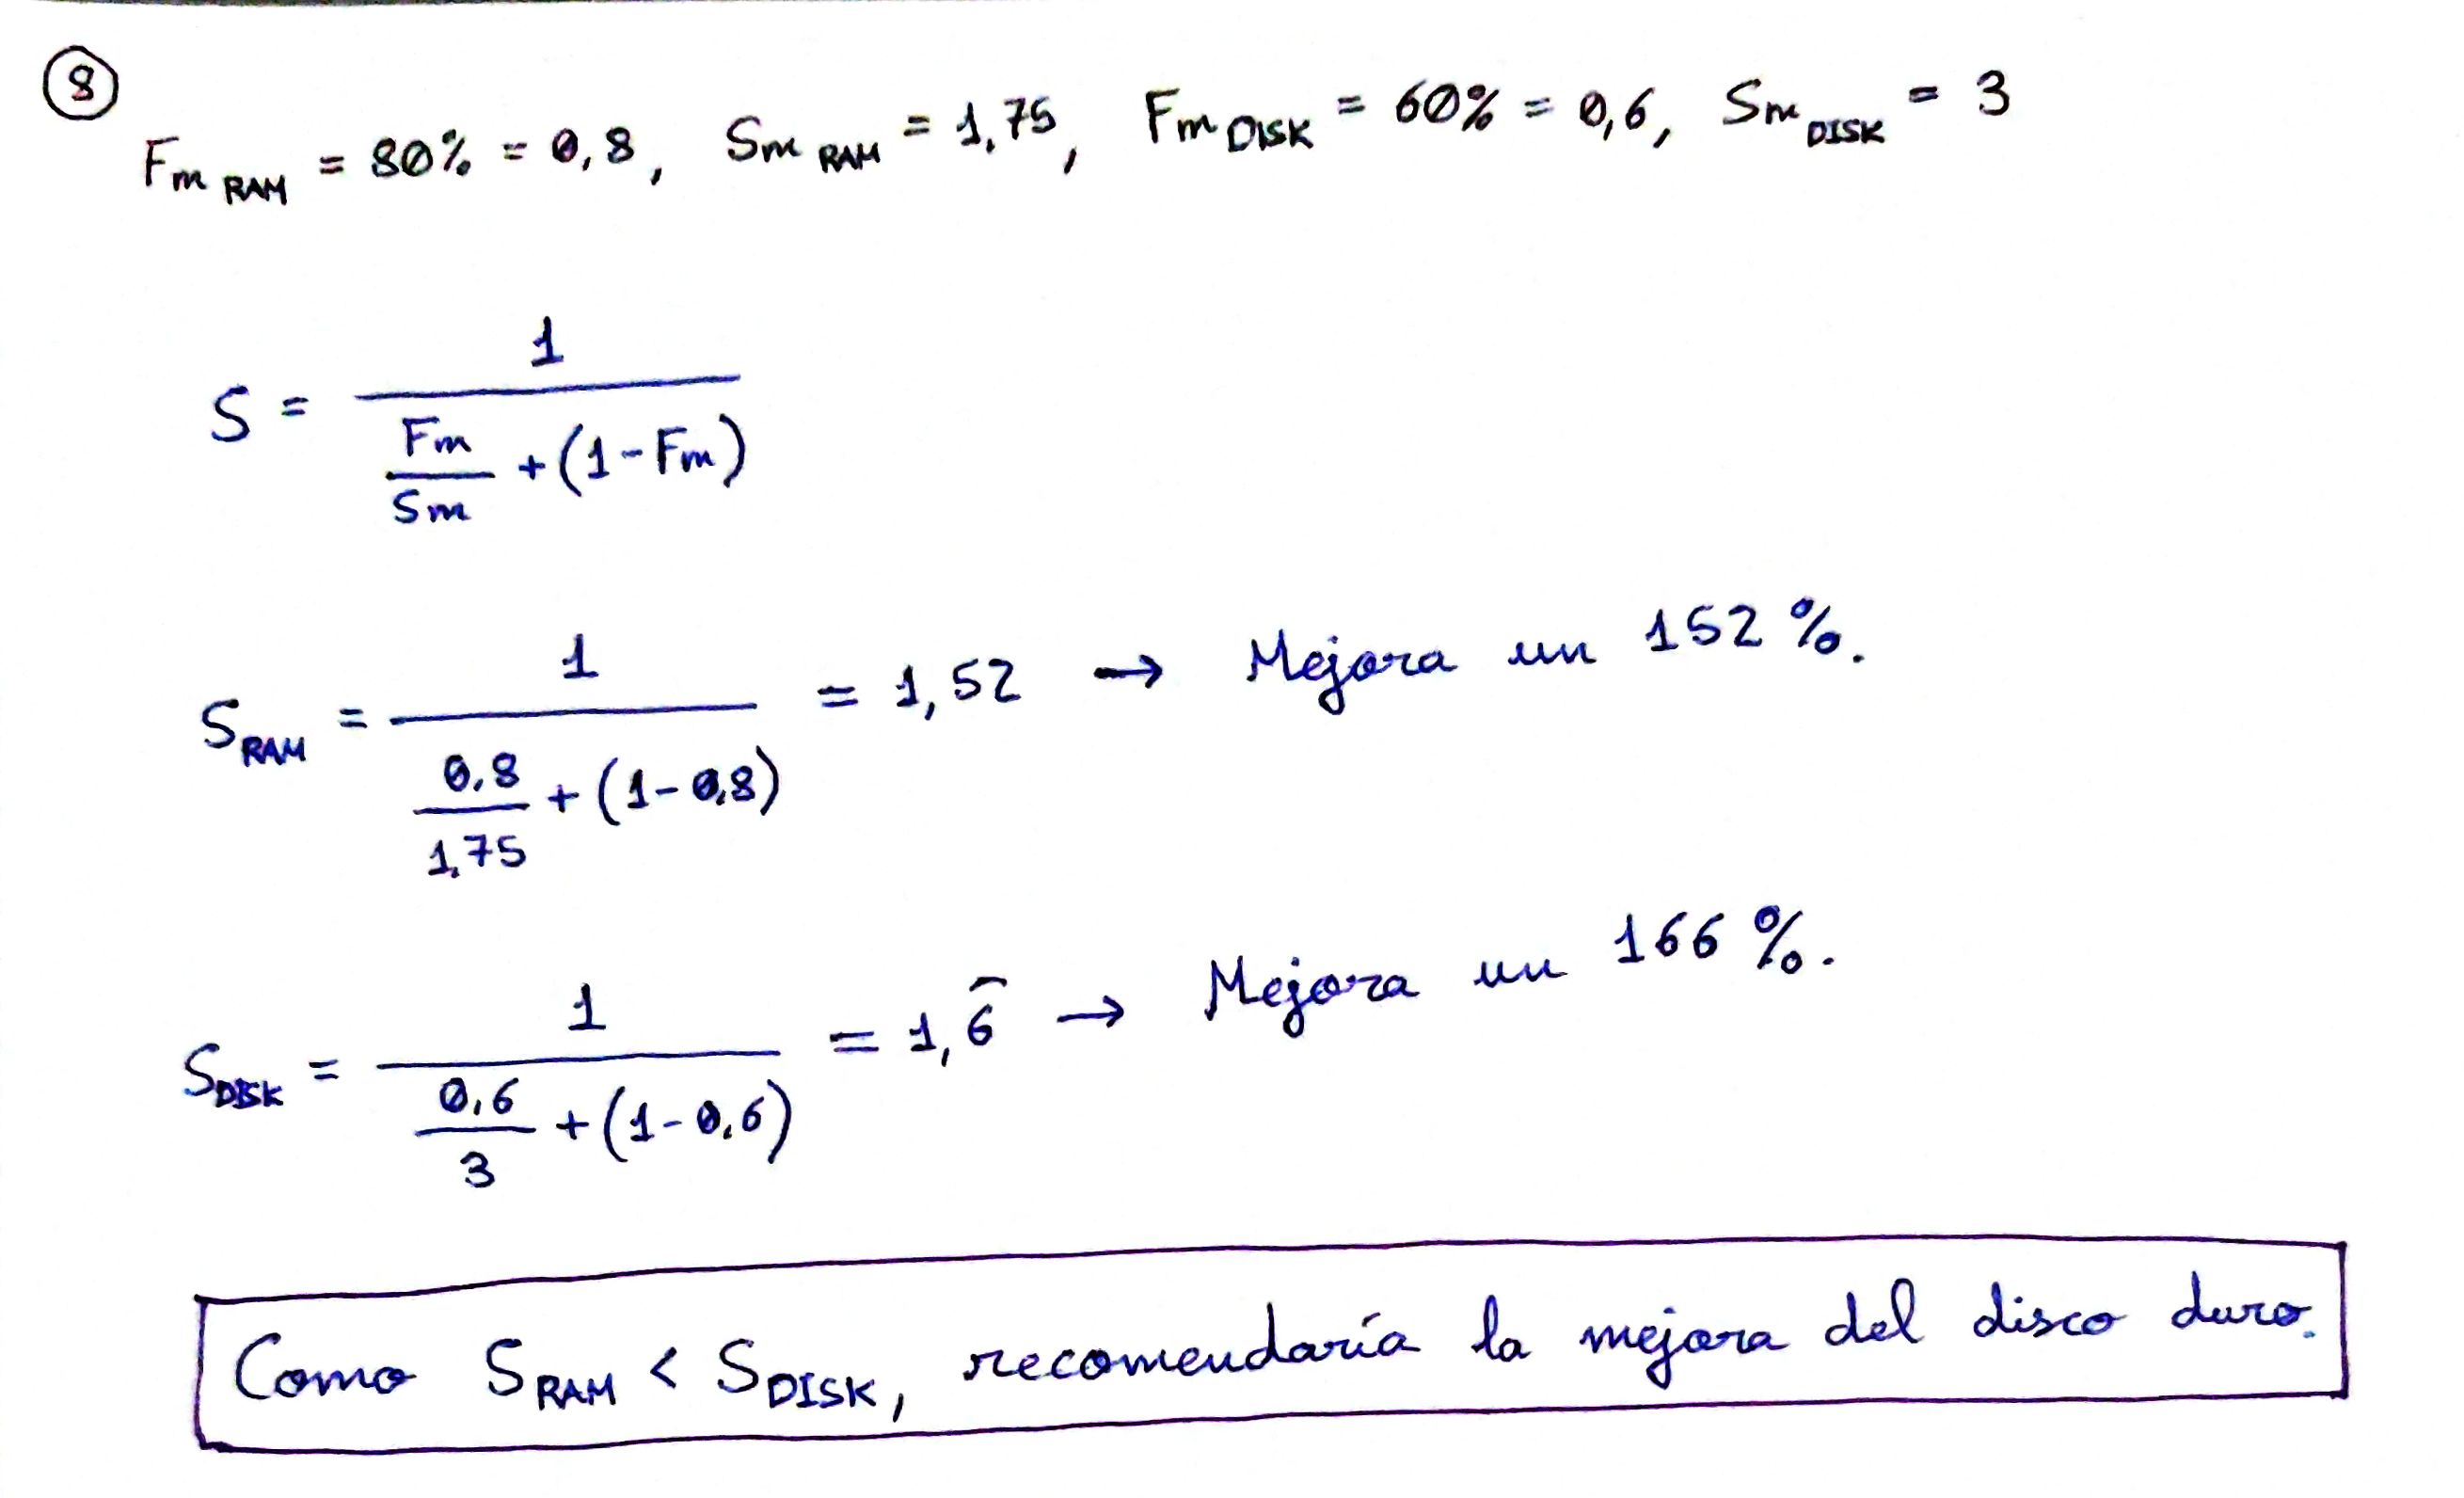 8
Fm RAM = 80% = 0,8, Sm RAM = 1,75, Fm DISK = 60% = 0,6, Sm DISK = 3
S = 1 / (Fm/Sm + (1-Fm))
S RAM = 1 / (0,8/1,75 + (1-0,8)) = 1,52 → Mejora un 152%.
S DISK = 1 / (0,6/3 + (1-0,6)) = 1,6̂ → Mejora un 166%.
Como S RAM < S DISK, recomendaría la mejora del disco duro.